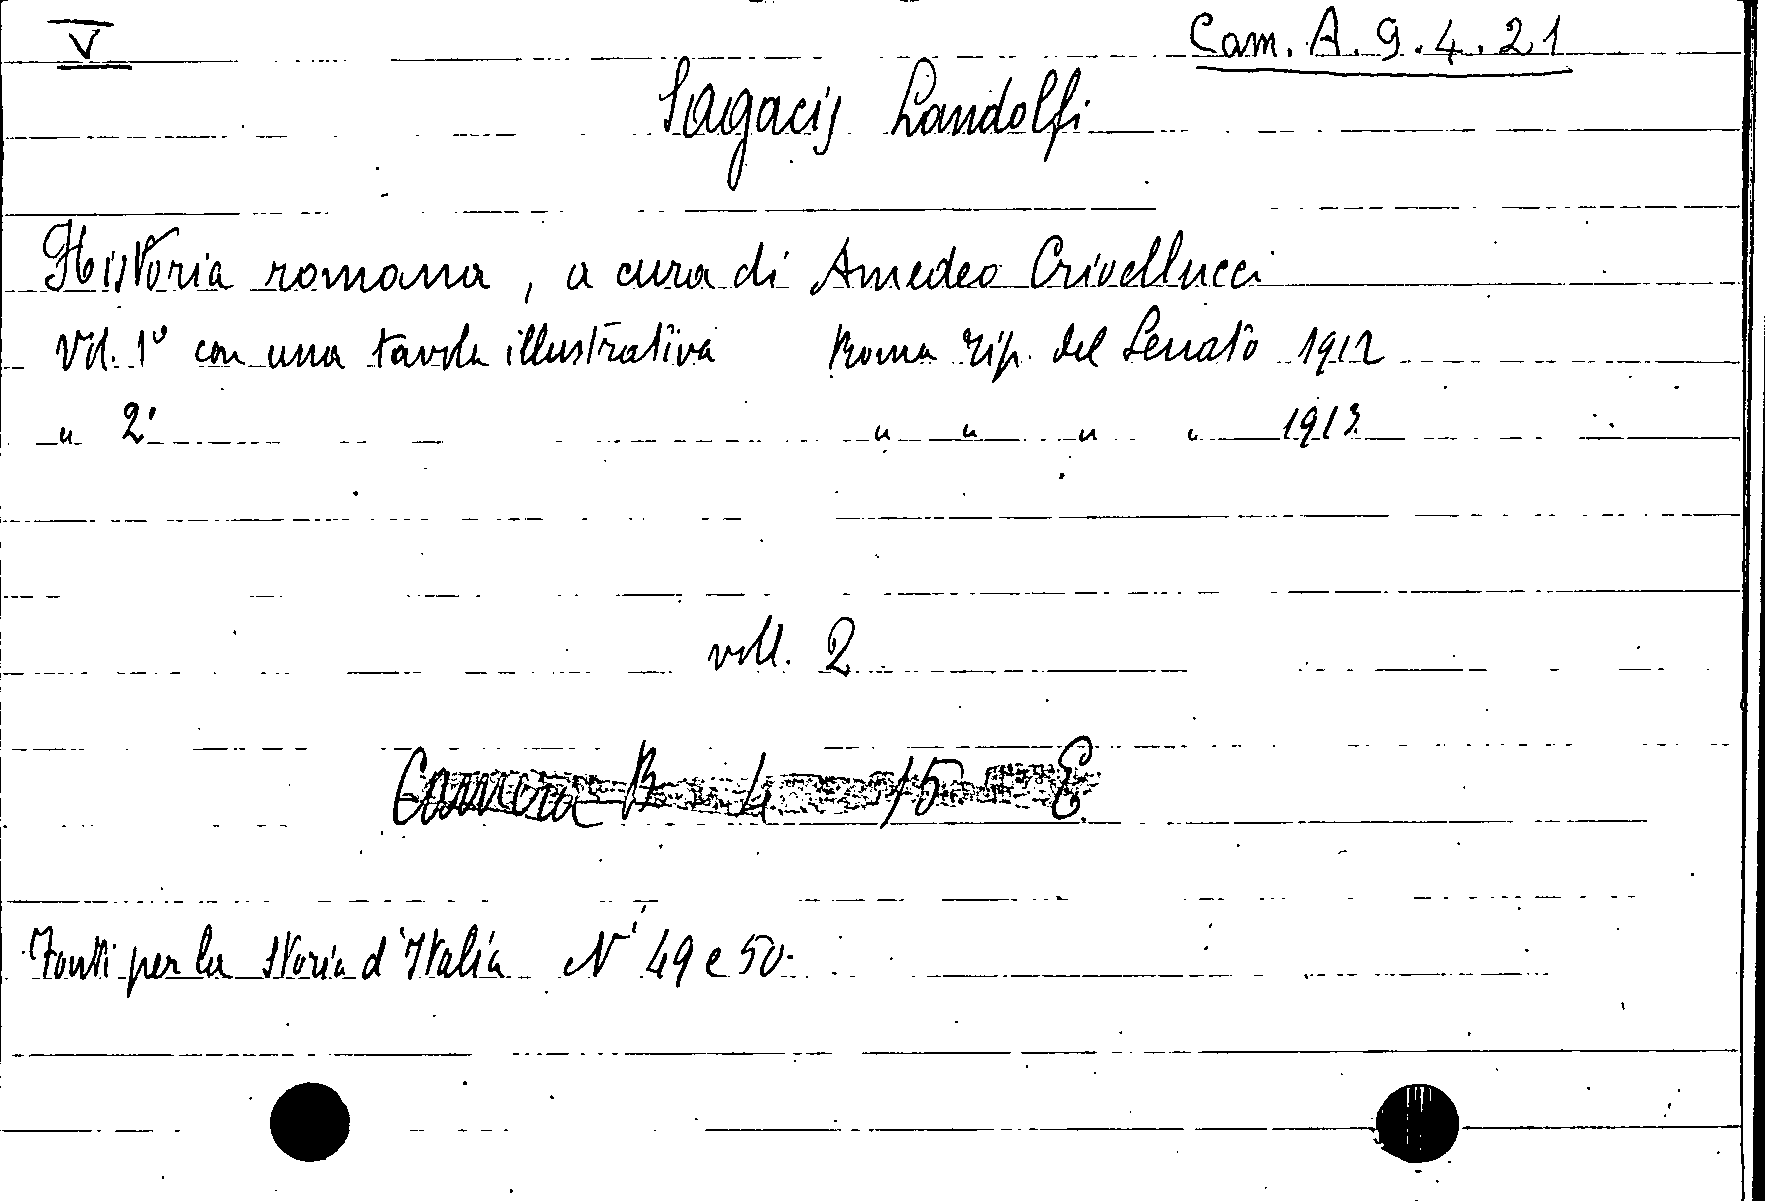 V
Cam. A. 9. 4. 21
Sagacis Landolfi
Historia romana, a cura di Amedeo Crivellucci
Vol. 1° con una tavola illustrativa Roma Tip. del Senato 1912
" 2° " " " " 1913
voll. 2
Camera B 4 15 E
Fonti per la Storia d'Italia N' 49 e 50.